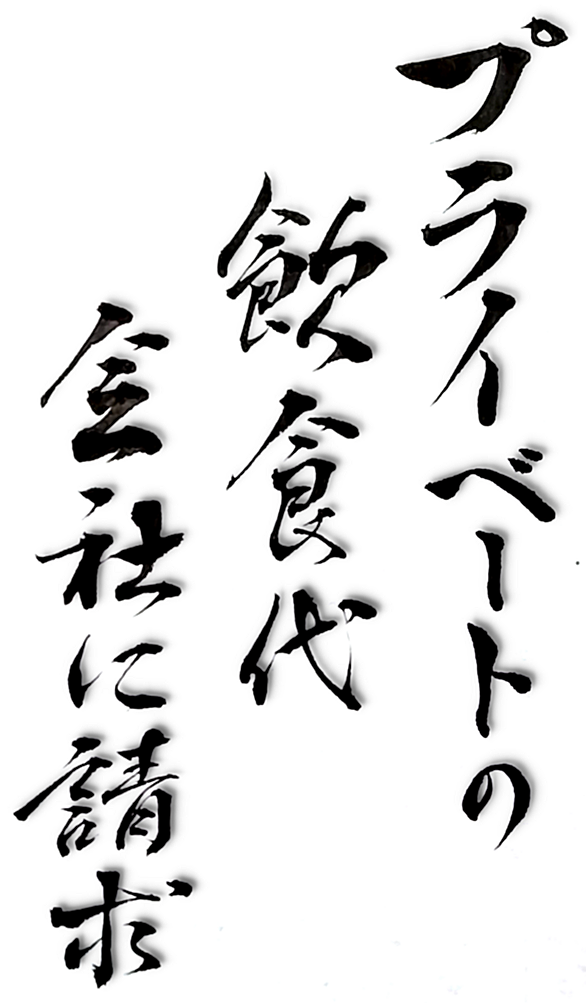 プライベートの
飲食代
会社に請求